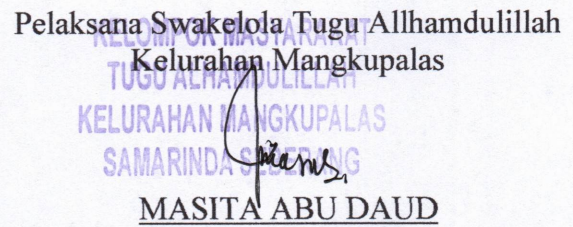 Pelaksana Swakelola Tugu Allhamdulillah
Kelurahan Mangkupalas
KELOMPOK MASYARAKAT
TUGU ALHAMDULILLAH
KELURAHAN MANGKUPALAS
SAMARINDA SEBERANG
MASITA ABU DAUD